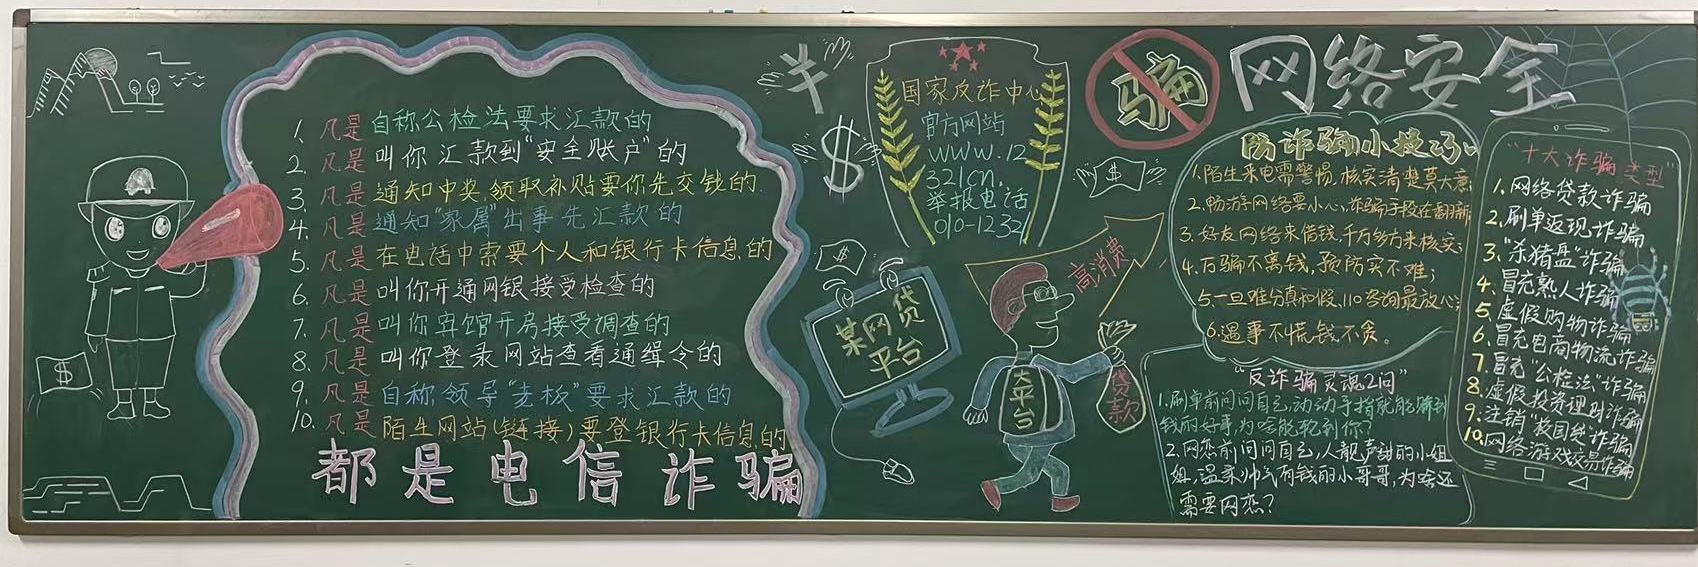 1. 凡是自称公检法要求汇款的
2. 凡是叫你汇款到“安全账户”的
3. 凡是通知中奖、领取补贴要你先交钱的.
4. 凡是通知“家属”出事先汇款的
5. 凡是在电话中索要个人和银行卡信息的
6. 凡是叫你开通网银接受检查的
7. 凡是叫你宾馆开房接受调查的
8. 凡是叫你登录网站查看通缉令的
9. 凡是自称领导“老板”要求汇款的
10. 凡是陌生网站(链接)要登银行卡信息的
都是电信诈骗
$
羊
$
国家反诈中心
官方网站
www.12
321cn.
举报电话
010-12321
$
某网贷
平台
高消费
大平台
贷款
$
骗
网络安全
防诈骗小技巧
1.陌生来电需警惕,核实清楚莫大意
2.畅游网络要小心,诈骗手段在翻新
3.好友网络来借钱,千万多方来核实;
4.万骗不离钱,预防实不难;
5.一旦难分真和假,110咨询最放心;
6.遇事不慌钱不贪。
“反诈骗灵魂2问”
1.刷单前问问自己,动动手指就能赚到
钱的好事,为啥能轮到你?
2.网恋前问问自己,人靓声甜的小姐
姐,温柔帅气有钱的小哥哥,为啥还
需要网恋?
“十大诈骗类型”
1.网络贷款诈骗
2.刷单返现诈骗
3.“杀猪盘”诈骗
4.冒充熟人诈骗
5.虚假购物诈骗
6.冒充电商物流诈骗
7.冒充“公检法”诈骗
8.虚假投资理财诈骗
9.注销“校园贷”诈骗
10.网络游戏交易诈骗